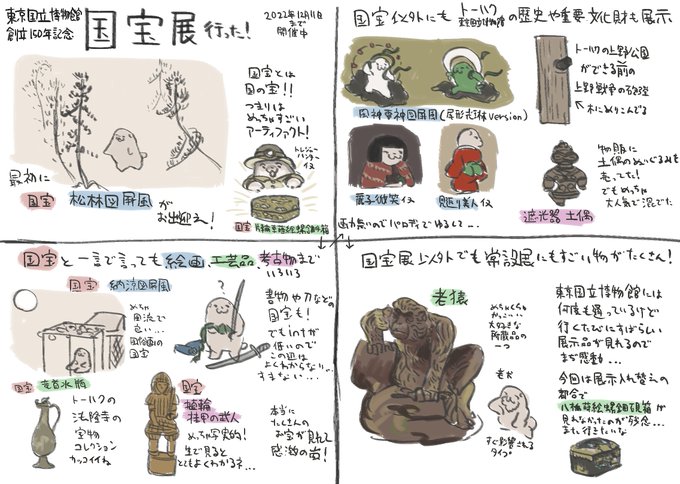 東京国立博物館
創立150年記念
国宝展 行った!
2022年12月11日
まで
開催中
国宝とは
国の宝!!
つまりは
めっちゃすごい
アーティファクト!
トレジャー
ハンター
イヌ
最初に
国宝 松林図屏風が
お出迎え!
国宝
国宝インタトにも トーハク
東京国立博物館
の歴史や重要文化財も展示
トーハクの上野公園
ができる前の
上野戦争の砲弾
←木にめりこんでる
風神雷神図屏風(尾形光琳version)
麗子微笑イヌ
見返り美人イヌ
画力無いのでパロディでゆるして...
物販に
土偶のぬいぐるみも
売ってた!
でもめっちゃ
大人気で混でた
遮光器土偶
国宝と一言で言っても絵画、工芸品、考古物まで
いろいろ
国宝 納涼図屏風
めっちゃ
風流で
良い...
国宝
?
書物や刀などの
国宝も!
でもintが
低いので
この辺は
よくわからない...
すまない...
国宝 竜首水瓶
トーハクの
法隆寺の
宝物
コレクション
カッコイイね
国宝
埴輪
挂甲の武人
めっちゃ写実的!
生で見ると
とてもよくわかるネ...
本当に
たくさんの
お宝が見れて
感激の嵐!
国宝展以外でも常設展にもすごい物がたくさん!
老猿
めちゃくちゃ
かっこいい
大好きな
所蔵品の
一つ
すぐ影響される
タイプ
東京国立博物館には
何度も通っているけど
行くたびにすばらしい
展示品が見れるので
まぢ感動...
今回は展示入れ替えの
都合で
八橋蒔絵螺鈿硯箱が
見れなかったのが残念...
また行きたいな